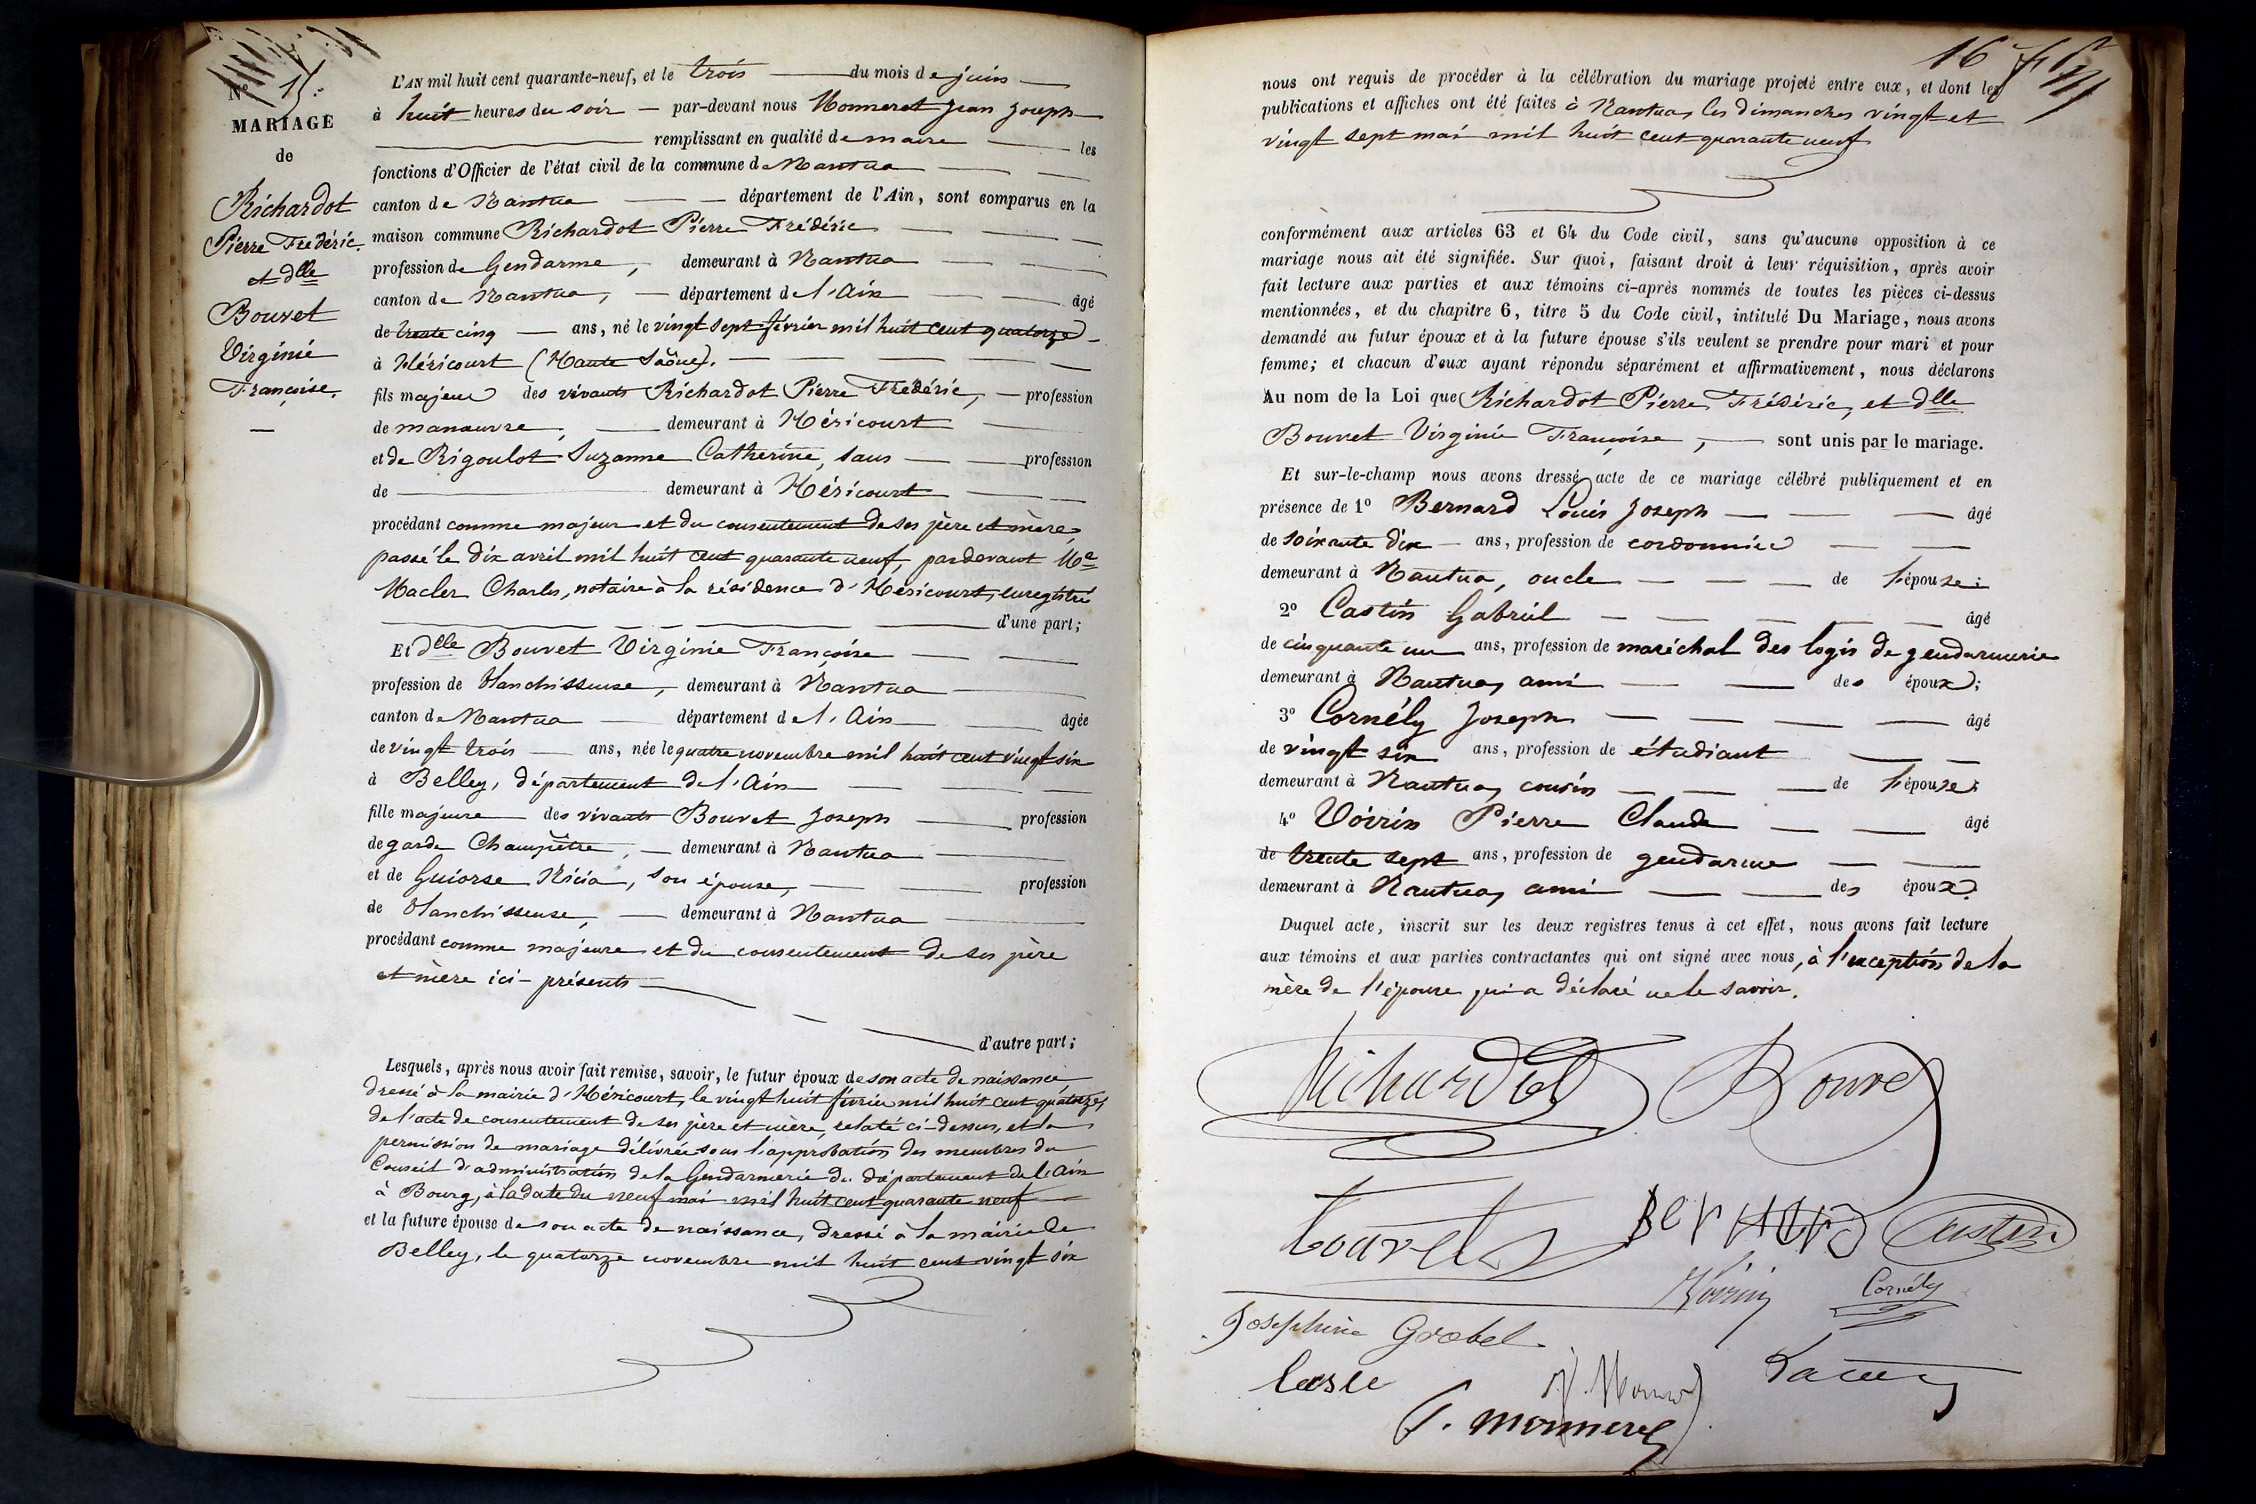 N° 15.
MARIAGE
de
Richardot
Pierre Frédéric
et dlle
Bouvet
Virginie
Françoise.
L'AN mil huit cent quarante-neuf, et le trois du mois de juin
à huit heures du soir par-devant nous Monneret Jean Joseph
remplissant en qualité de maire les
fonctions d'Officier de l'état civil de la commune de Nantua
canton de Nantua département de l'Ain, sont comparus en la
maison commune Richardot Pierre Frédéric
profession de Gendarme, demeurant à Nantua
canton de Nantua, département de l'Ain âgé
de trente cinq ans, né le vingt sept février mil huit cent quatorze
à Héricourt (Haute Saône).
fils majeur des vivants Richardot Pierre Frédéric, profession
de manœuvre, demeurant à Héricourt
et de Rigoulot Suzanne Catherine, sans profession
de demeurant à Héricourt
procédant comme majeur et du consentement de ses père et mère,
passé le dix avril mil huit cent quarante neuf, pardevant Me
Macler Charles, notaire à la résidence d'Héricourt, enregistré
d'une part;
Et dlle Bouvet Virginie Françoise
profession de blanchisseuse, demeurant à Nantua
canton de Nantua département de l'Ain âgée
de vingt trois ans, née le quatre novembre mil huit cent vingt six
à Belley, département de l'Ain
fille majeure des vivants Bouvet Joseph profession
de garde Champêtre, demeurant à Nantua
et de Guiorse Nicia, son épouse, profession
de blanchisseuse, demeurant à Nantua
procédant comme majeure et du consentement de ses père
et mère ici-présents
d'autre part;
Lesquels, après nous avoir fait remise, savoir, le futur époux de son acte de naissance
dressé à la mairie d'Héricourt, le vingt huit février mil huit cent quatorze,
de l'acte de consentement de ses père et mère, relaté ci-dessus, et la
permission de mariage délivrée sous l'approbation des membres du
Conseil d'administration de la Gendarmerie du département de l'Ain
à Bourg, à la date du neuf mai mil huit cent quarante neuf
et la future épouse de son acte de naissance, dressé à la mairie de
Belley, le quatorze novembre mil huit cent vingt six
16
nous ont requis de procéder à la célébration du mariage projeté entre eux, et dont les
publications et affiches ont été faites à Nantua, les dimanches vingt et
vingt sept mai mil huit cent quarante neuf
conformément aux articles 63 et 64 du Code civil, sans qu'aucune opposition à ce
mariage nous ait été signifiée. Sur quoi, faisant droit à leur réquisition, après avoir
fait lecture aux parties et aux témoins ci-après nommés de toutes les pièces ci-dessus
mentionnées, et du chapitre 6, titre 5 du Code civil, intitulé Du Mariage, nous avons
demandé au futur époux et à la future épouse s'ils veulent se prendre pour mari et pour
femme; et chacun d'eux ayant répondu séparément et affirmativement, nous déclarons
Au nom de la Loi que Richardot Pierre Frédéric, et dlle
Bouvet Virginie Françoise, sont unis par le mariage.
Et sur-le-champ nous avons dressé acte de ce mariage célébré publiquement et en
présence de 1° Bernard Louis Joseph âgé
de soixante dix ans, profession de cordonnier
demeurant à Nantua, oncle de l'épouse;
2° Castin Gabriel âgé
de cinquante un ans, profession de maréchal des logis de gendarmerie
demeurant à Nantua, ami des époux;
3° Cornély Joseph âgé
de vingt six ans, profession de étudiant
demeurant à Nantua, cousin de l'épouse;
4° Voirin Pierre Claude âgé
de trente sept ans, profession de gendarme
demeurant à Nantua, ami des époux.
Duquel acte, inscrit sur les deux registres tenus à cet effet, nous avons fait lecture
aux témoins et aux parties contractantes qui ont signé avec nous, à l'exception de la
mère de l'épouse qui a déclaré ne le savoir.
Richardot Bouvet
Bouvet Bernard Castin
Voirin Cornély
Joséphine Grobel
J. Monneret